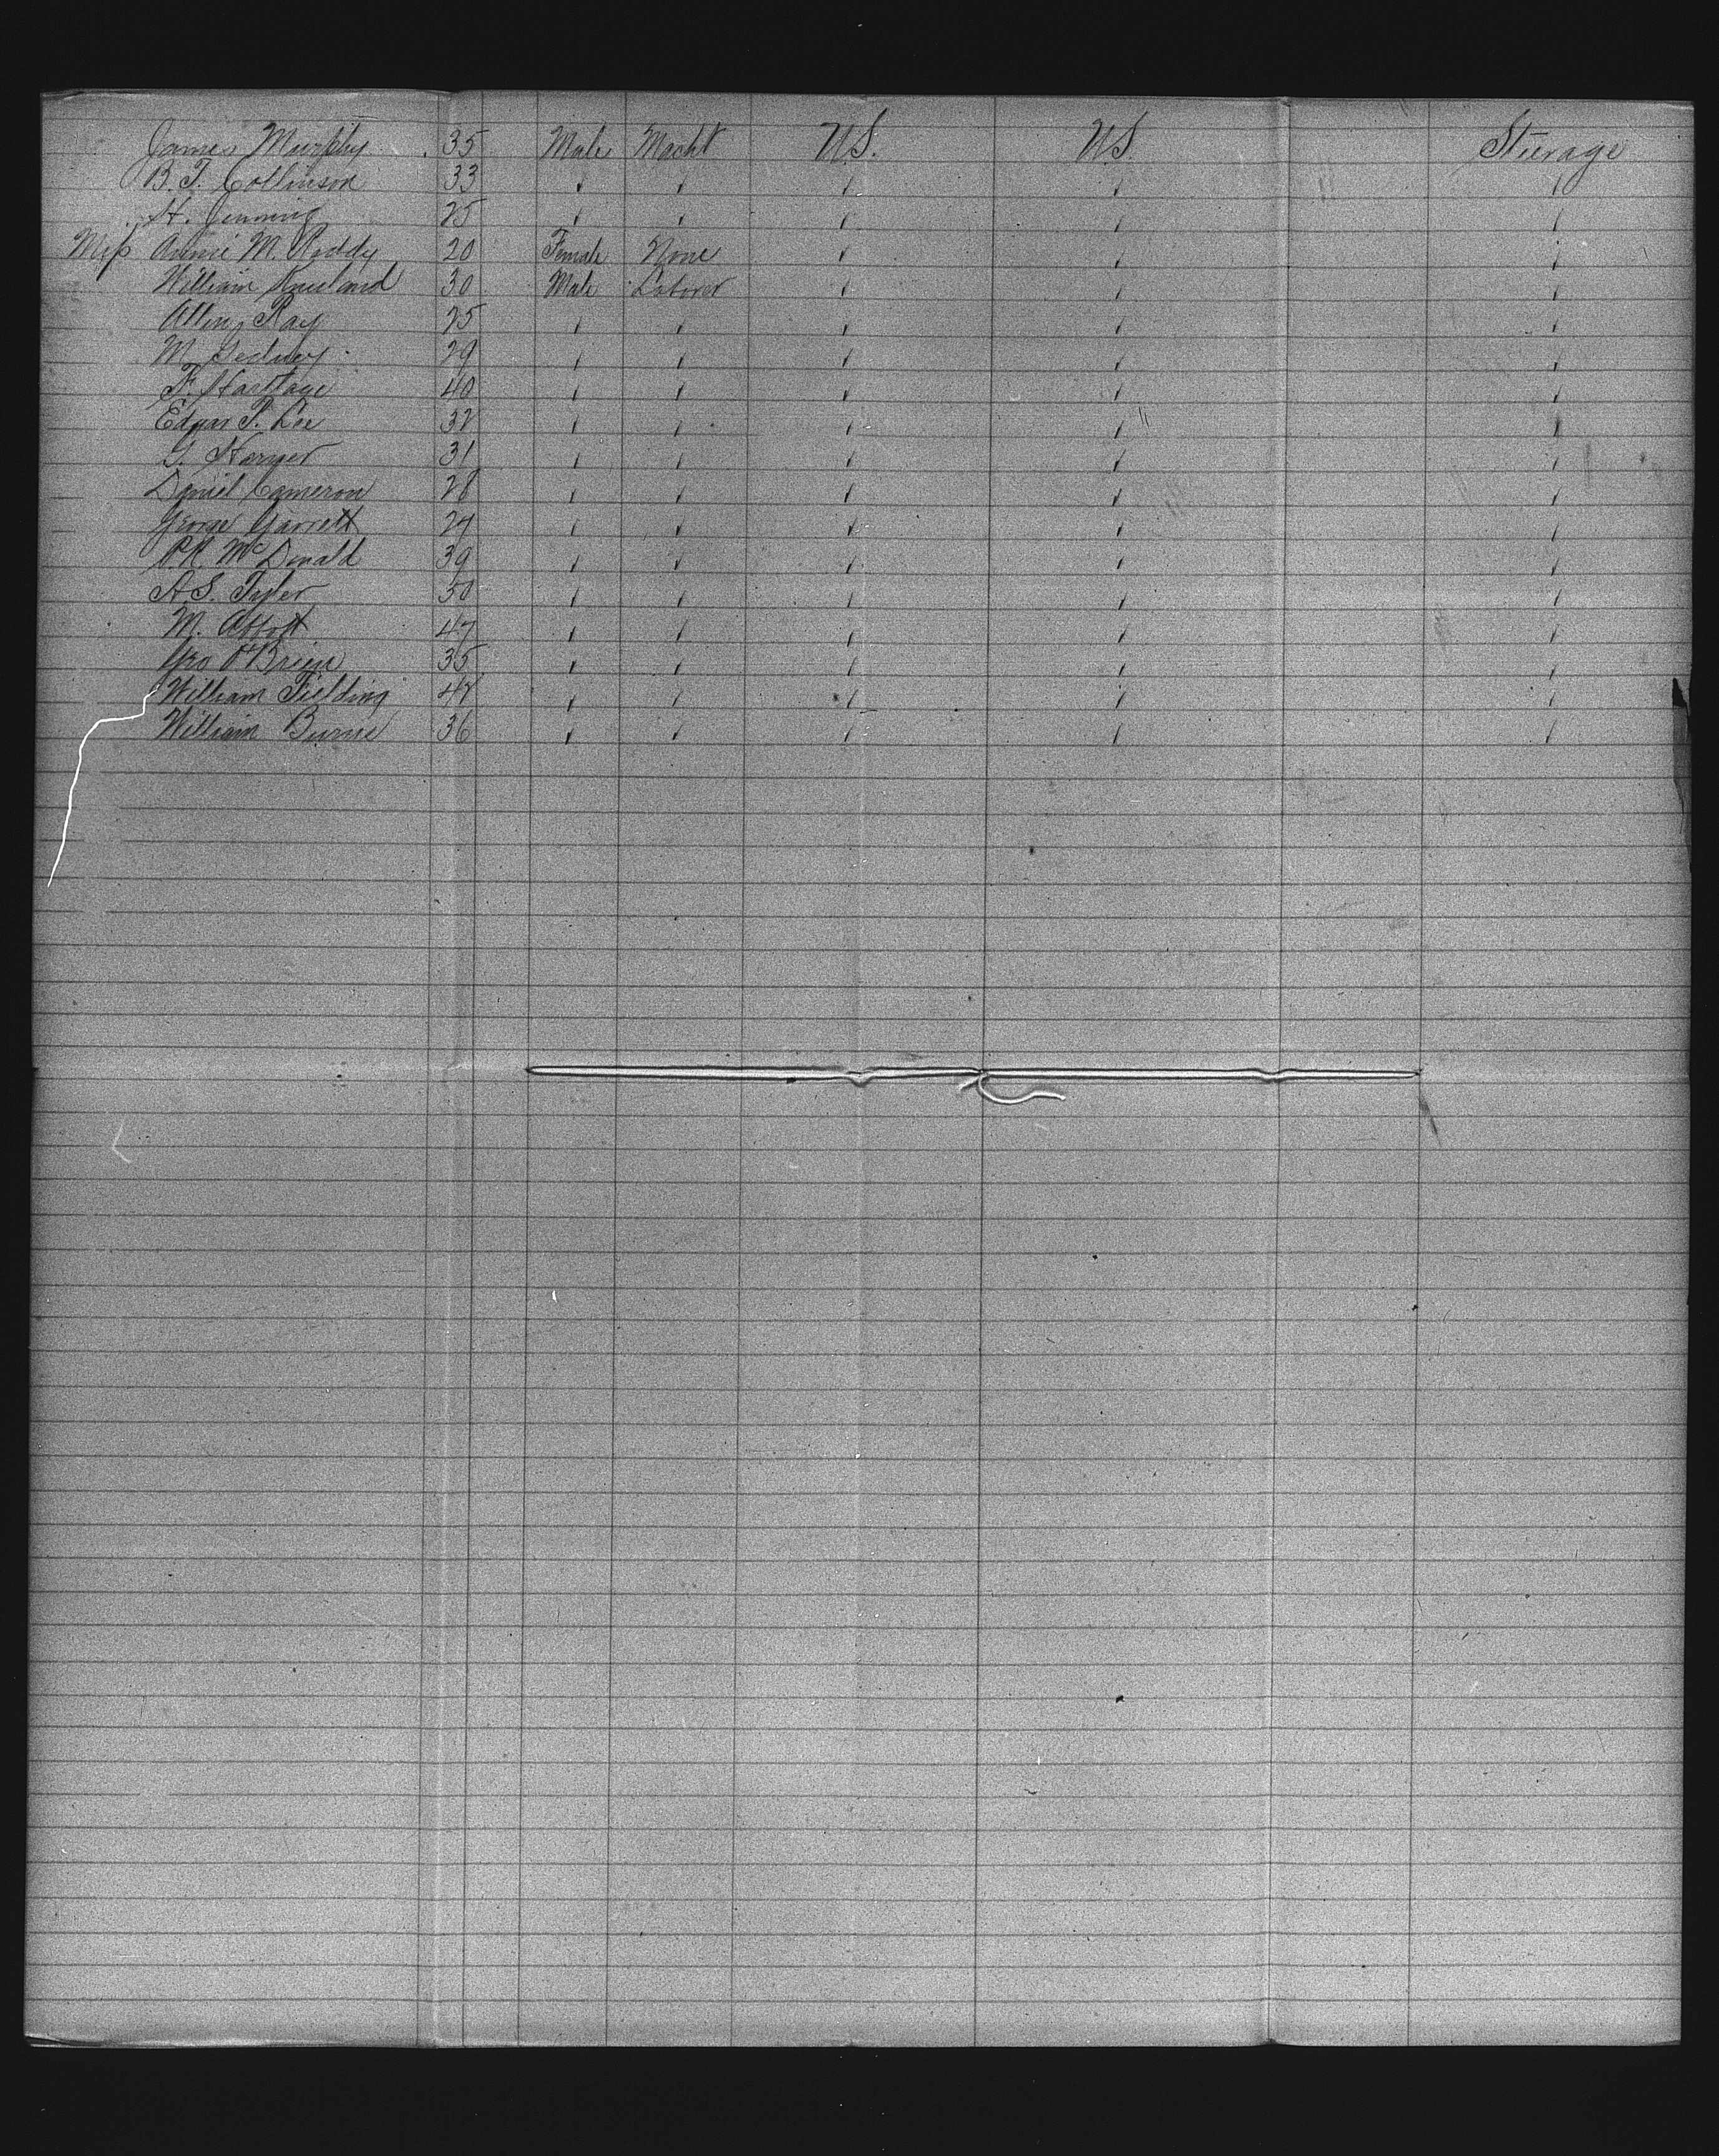 James Murphy 35 Male Macht U.S. U.S. Steerage
B. T. Collinson 33 " " " " "
H. Jenning 25 " " " " "
Miss Annie M. Reddy 20 Female None " " "
William 30 Male Laborer " " "
Allen Ray 25 " " " " "
M. 29 " " " " "
F. 40 " " " " "
Edgar P. Lee 32 " " " " "
G. Harper 31 " " " " "
Daniel Cameron 28 " " " " "
George Garrett 24 " " " " "
McDonald 39 " " " " "
A. S. Tyler 30 " " " " "
M. Abbott 47 " " " " "
Geo O'Brien 35 " " " " "
William Fielding 42 " " " " "
William Burne 36 " " " " "